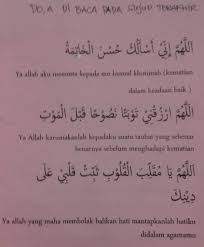 DO,A DI BACA PADA SUJUD TERAKHIR
اَللَّهُمَّ إِنِّي أَسْأَلُكَ حُسْنَ الْخَاتِمَةِ
Ya allah aku meminta kepada mu husnul khotimah (kematian
dalam keadaan baik )
اَللَّهُمَّ ارْزُقْنِي تَوْبَتًا نَصُوْحًا قَبْلَ الْمَوْتِ
Ya Allah karuniakanlah kepadaku suatu taubat yang sebenar
benarnya sebelum menghadapi kematian
اَللَّهُمَّ يَا مُقَلِّبَ الْقُلُوْبِ ثَبِّتْ قَلْبِيْ عَلَى
دِيْنِكَ
Ya allah yang maha membolak balikan hati mantapkanlah hatiku
didalam agamamu